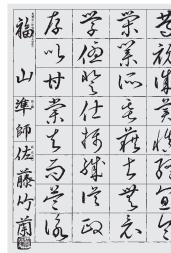 篤初誠美慎終宜令
榮業所基藉甚無竟
学優登仕攝職従政
存以甘棠去而益詠
福山準師佐藤竹蘭